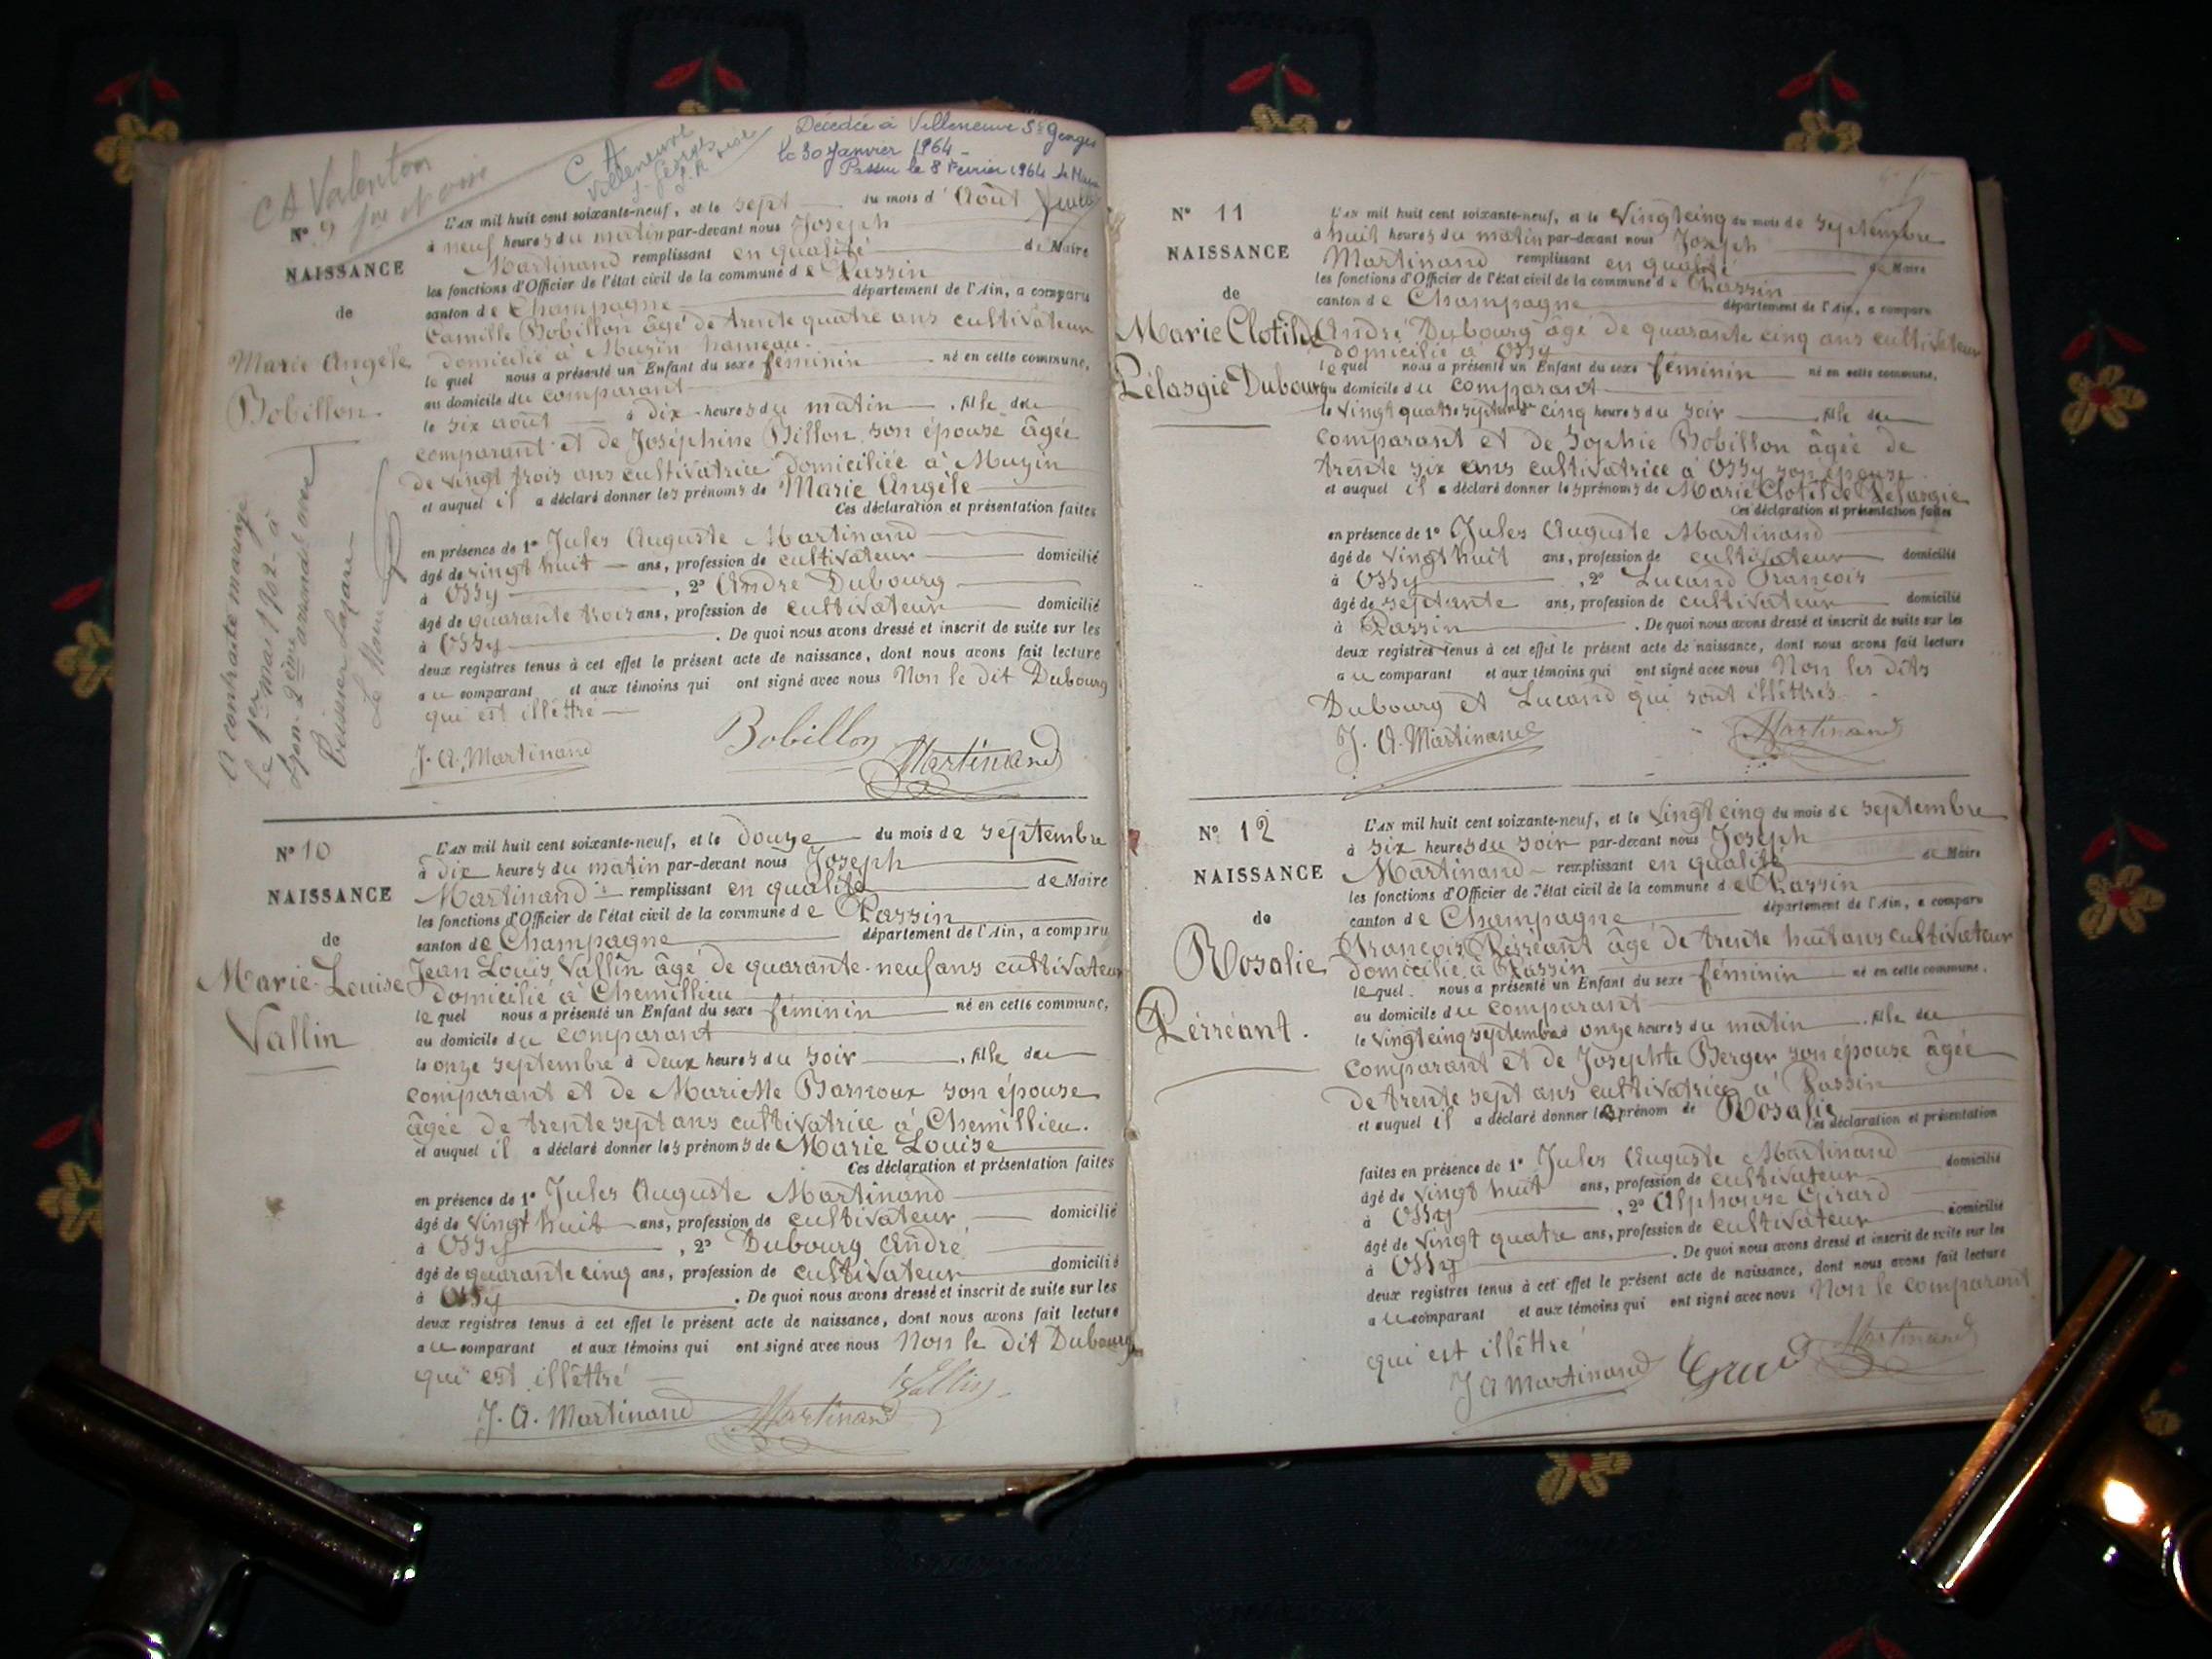 C A Valenton
C A
Villeneuve
St Georges
Décédée à Villeneuve St Georges
le 30 Janvier 1964 -
Passin le 8 Fevrier 1964 Le Maire
N° 9
NAISSANCE
de
Marie Angèle
Bobillon.
A contracté mariage
le 1er mai 1902 à
Lyon 2ème arrondt avec
Le Maire
L'AN mil huit cent soixante-neuf, et le sept du mois d' Août
à neuf heures du matin par-devant nous Joseph
Martinand remplissant en qualité de Maire
les fonctions d'Officier de l'état civil de la commune de Passin
canton de Champagne département de l'Ain, a comparu
Camille Bobillon âgé de trente quatre ans cultivateur
domicilié à Muzin hameau.
lequel nous a présenté un Enfant du sexe féminin né en cette commune,
au domicile du comparant
le six août à dix heures du matin, fille du
comparant et de Joséphine Billon son épouse âgée
de vingt trois ans cultivatrice domiciliée à Muzin
et auquel il a déclaré donner les prénoms de Marie Angèle
Ces déclaration et présentation faites
en présence de 1° Jules Auguste Martinand
âgé de vingt huit ans, profession de cultivateur domicilié
à Ossy, 2° André Dubourg
âgé de quarante trois ans, profession de cultivateur domicilié
à Ossy. De quoi nous avons dressé et inscrit de suite sur les
deux registres tenus à cet effet le présent acte de naissance, dont nous avons fait lecture
au comparant et aux témoins qui ont signé avec nous Non le dit Dubourg
qui est illêttré
J. A. Martinand Bobillon Martinand
N° 10
NAISSANCE
de
Marie-Louise
Vallin
L'AN mil huit cent soixante-neuf, et le douze du mois de septembre
à dix heures du matin par-devant nous Joseph
Martinand remplissant en qualité de Maire
les fonctions d'Officier de l'état civil de la commune de Passin
canton de Champagne département de l'Ain, a comparu
Jean Louis Vallin âgé de quarante-neuf ans cultivateur
domicilié à Chemillieu
lequel nous a présenté un Enfant du sexe féminin né en cette commune,
au domicile du comparant
le onze septembre à deux heures du soir, fille du
comparant et de Mariette Barnoux son épouse
âgée de trente sept ans cultivatrice à Chemillieu.
et auquel il a déclaré donner les prénoms de Marie Louise
Ces déclaration et présentation faites
en présence de 1° Jules Auguste Martinand
âgé de vingt huit ans, profession de cultivateur domicilié
à Ossy, 2° Dubourg André
âgé de quarante cinq ans, profession de cultivateur domicilié
à Ossy. De quoi nous avons dressé et inscrit de suite sur les
deux registres tenus à cet effet le présent acte de naissance, dont nous avons fait lecture
au comparant et aux témoins qui ont signé avec nous Non le dit Dubourg
qui est illêttré
J. A. Martinand Martinand Vallin
N° 11
NAISSANCE
de
Marie Clotilde
Pélasgie Dubourg
L'AN mil huit cent soixante-neuf, et le Vingt cinq du mois de septembre
à huit heures du matin par-devant nous Joseph
Martinand remplissant en qualité de Maire
les fonctions d'Officier de l'état civil de la commune de Passin
canton de Champagne département de l'Ain, a comparu
André Dubourg âgé de quarante cinq ans cultivateur
domicilié à Ossy
lequel nous a présenté un Enfant du sexe féminin né en cette commune,
au domicile du comparant
le Vingt quatre septembre cinq heures du soir, fille du
comparant et de Sophie Bobillon âgée de
trente six ans cultivatrice à Ossy son épouse
et auquel il a déclaré donner les prénoms de Marie Clotilde Pélasgie
Ces déclaration et présentation faites
en présence de 1° Jules Auguste Martinand
âgé de vingt huit ans, profession de cultivateur domicilié
à Ossy, 2° Lucand François
âgé de septante ans, profession de cultivateur domicilié
à Passin. De quoi nous avons dressé et inscrit de suite sur les
deux registres tenus à cet effet le présent acte de naissance, dont nous avons fait lecture
au comparant et aux témoins qui ont signé avec nous Non les dits
Dubourg et Lucand qui sont illêttrés.
J. A. Martinand Martinand
N° 12
NAISSANCE
de
Rosalie
Pérréant.
L'AN mil huit cent soixante-neuf, et le vingt cinq du mois de septembre
à six heures du soir par-devant nous Joseph
Martinand remplissant en qualité de Maire
les fonctions d'Officier de l'état civil de la commune de Passin
canton de Champagne département de l'Ain, a comparu
François Pérréant âgé de trente huit ans cultivateur
domicilié à Passin
lequel nous a présenté un Enfant du sexe féminin né en cette commune,
au domicile du comparant
le vingt cinq septembre à onze heures du matin, fille du
comparant et de Josephte Berger son épouse âgée
de trente sept ans cultivatrice à Passin
et auquel il a déclaré donner le prénom de Rosalie
Ces déclaration et présentation
faites en présence de 1° Jules Auguste Martinand
âgé de vingt huit ans, profession de cultivateur domicilié
à Ossy, 2° Alphonse Girard
âgé de vingt quatre ans, profession de cultivateur domicilié
à Ossy. De quoi nous avons dressé et inscrit de suite sur les
deux registres tenus à cet effet le présent acte de naissance, dont nous avons fait lecture
au comparant et aux témoins qui ont signé avec nous Non le comparant
qui est illêttré
J A Martinand Girard Martinand